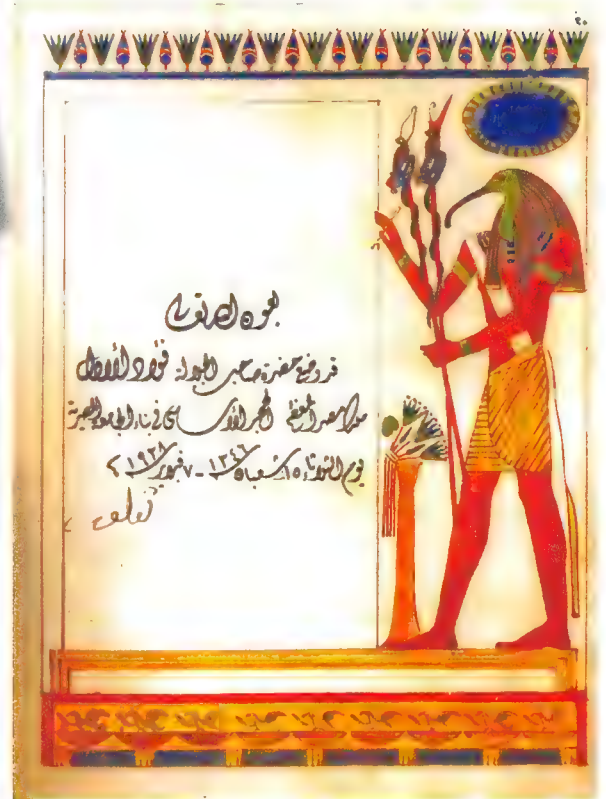 ٢٠
بعون الله تعالى
قد وضع حضرة صاحب الجلالة فؤاد الأول
ملك مصر المعظم الحجر الأساسى فى بناء الجامعة المصرية
يوم الثلاثاء ١٥ شعبان ١٣٤٦ - ٧ فبراير ١٩٢٨